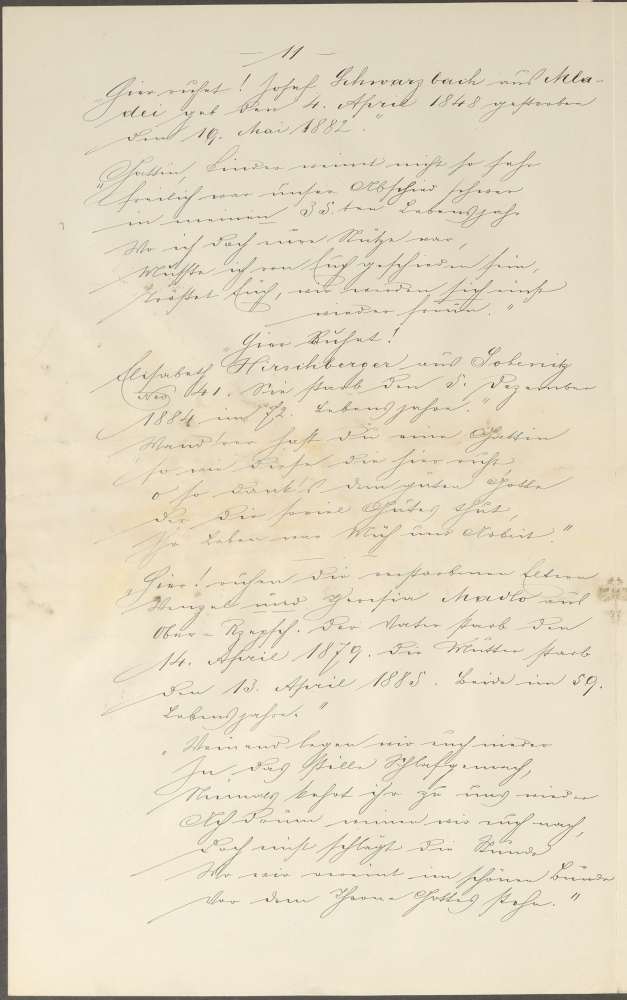 — 11 —
„Hier ruhet! Josef Schwarzbach aus Mla-
dei geb den 4. April 1848 gestorben
den 19. Mai 1882.“
„Gattin, Kinder weinet nicht so sehr
freilich war unser Abschied schwer
in meinem 35.ten Lebensjahr
Wo ich doch eure Stütze war,
Mußte ich von Euch geschieden sein,
Tröstet Euch, wir werden sich einst
wieder freuen.“
„Hier Ruhet!
Elisabeth Hirschberger aus Soberitz
Nro 41. Sie starb den 5. Dezember
1884 im 72. Lebensjahre.“
Wand'rer hast du eine Gattin
so wie diese die hier ruht,
o so dank's dem guten Gotte
der dir soviel Gutes thut,
Ihr Leben war Müh und Arbeit.“
„Hier! ruhen die verstorbenen Eltern
Wenzel und Theresia Madlo aus
Ober-Rzepsch. Der Vater starb den
14. April 1879. Die Mutter starb
den 13. April 1885. Beide im 59.
Lebensjahre.“
„Weinend legen wir euch nieder
In das stille Schlafgemach,
Niemals kehrt ihr zu uns wieder
Ach drum weinen wir euch nach,
Doch einst schlägt die Stunde
Wo wir vereint im schönen Bunde
Vor dem Throne Gottes stehn.“